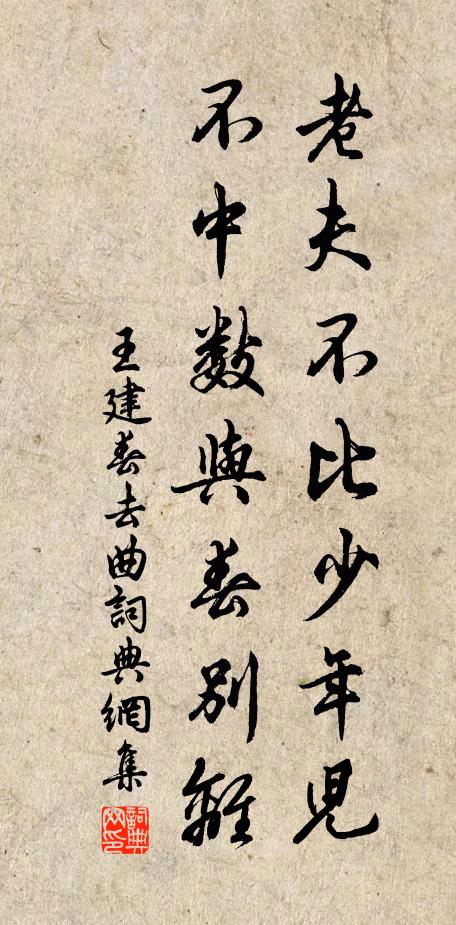 老夫不比少年兒
不中數與春別離
王建春去曲詞典網集
詞典網印